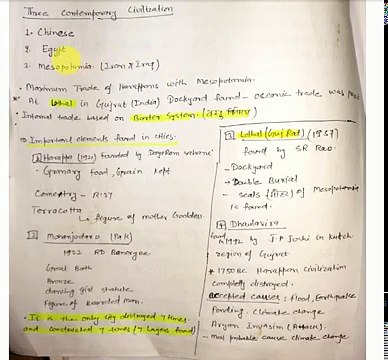 Three Contemporary Civilization
1. Chinese
2. Egypt
3. Mesopotamia. (Iran & Iraq)
• Maximum Trade of Harappans with Mesopotamia.
* At Lothal in Gujrat (India) Dockyard found - oceanic trade was
• Internal trade based on Barter System. (वस्तु विनिमय)
⇒ Important elements found in cities.
1 Harappa (1921) founded by DayaRam
Granary food, Grain kept
Cemetry - R-37
Terracotta
↳ figure of mother Goddess.
2 Mohanjodaro (Pak)
1922 RD Banerjee
Great Bath
Bronze
dancing girl statute
Figure of Bearded man.
• It is the only city destroyed 7 times
and constructed 7 times (7 layers found)
3 Lothal (Gujrat) (1957)
found by SR Rao.
- Dockyard
→ Double Burial
- seals of Mesopotamia
is found.
4 Dhaulavira
found in 1992 by J.P Joshi in Kutch
region of Gujrat
* 1750 BC Harappan civilization
completely distroyed.
accepted causes: flood, Earthquake
Climate change
Aryan Invasion (Attack).
- most probable cause climate change